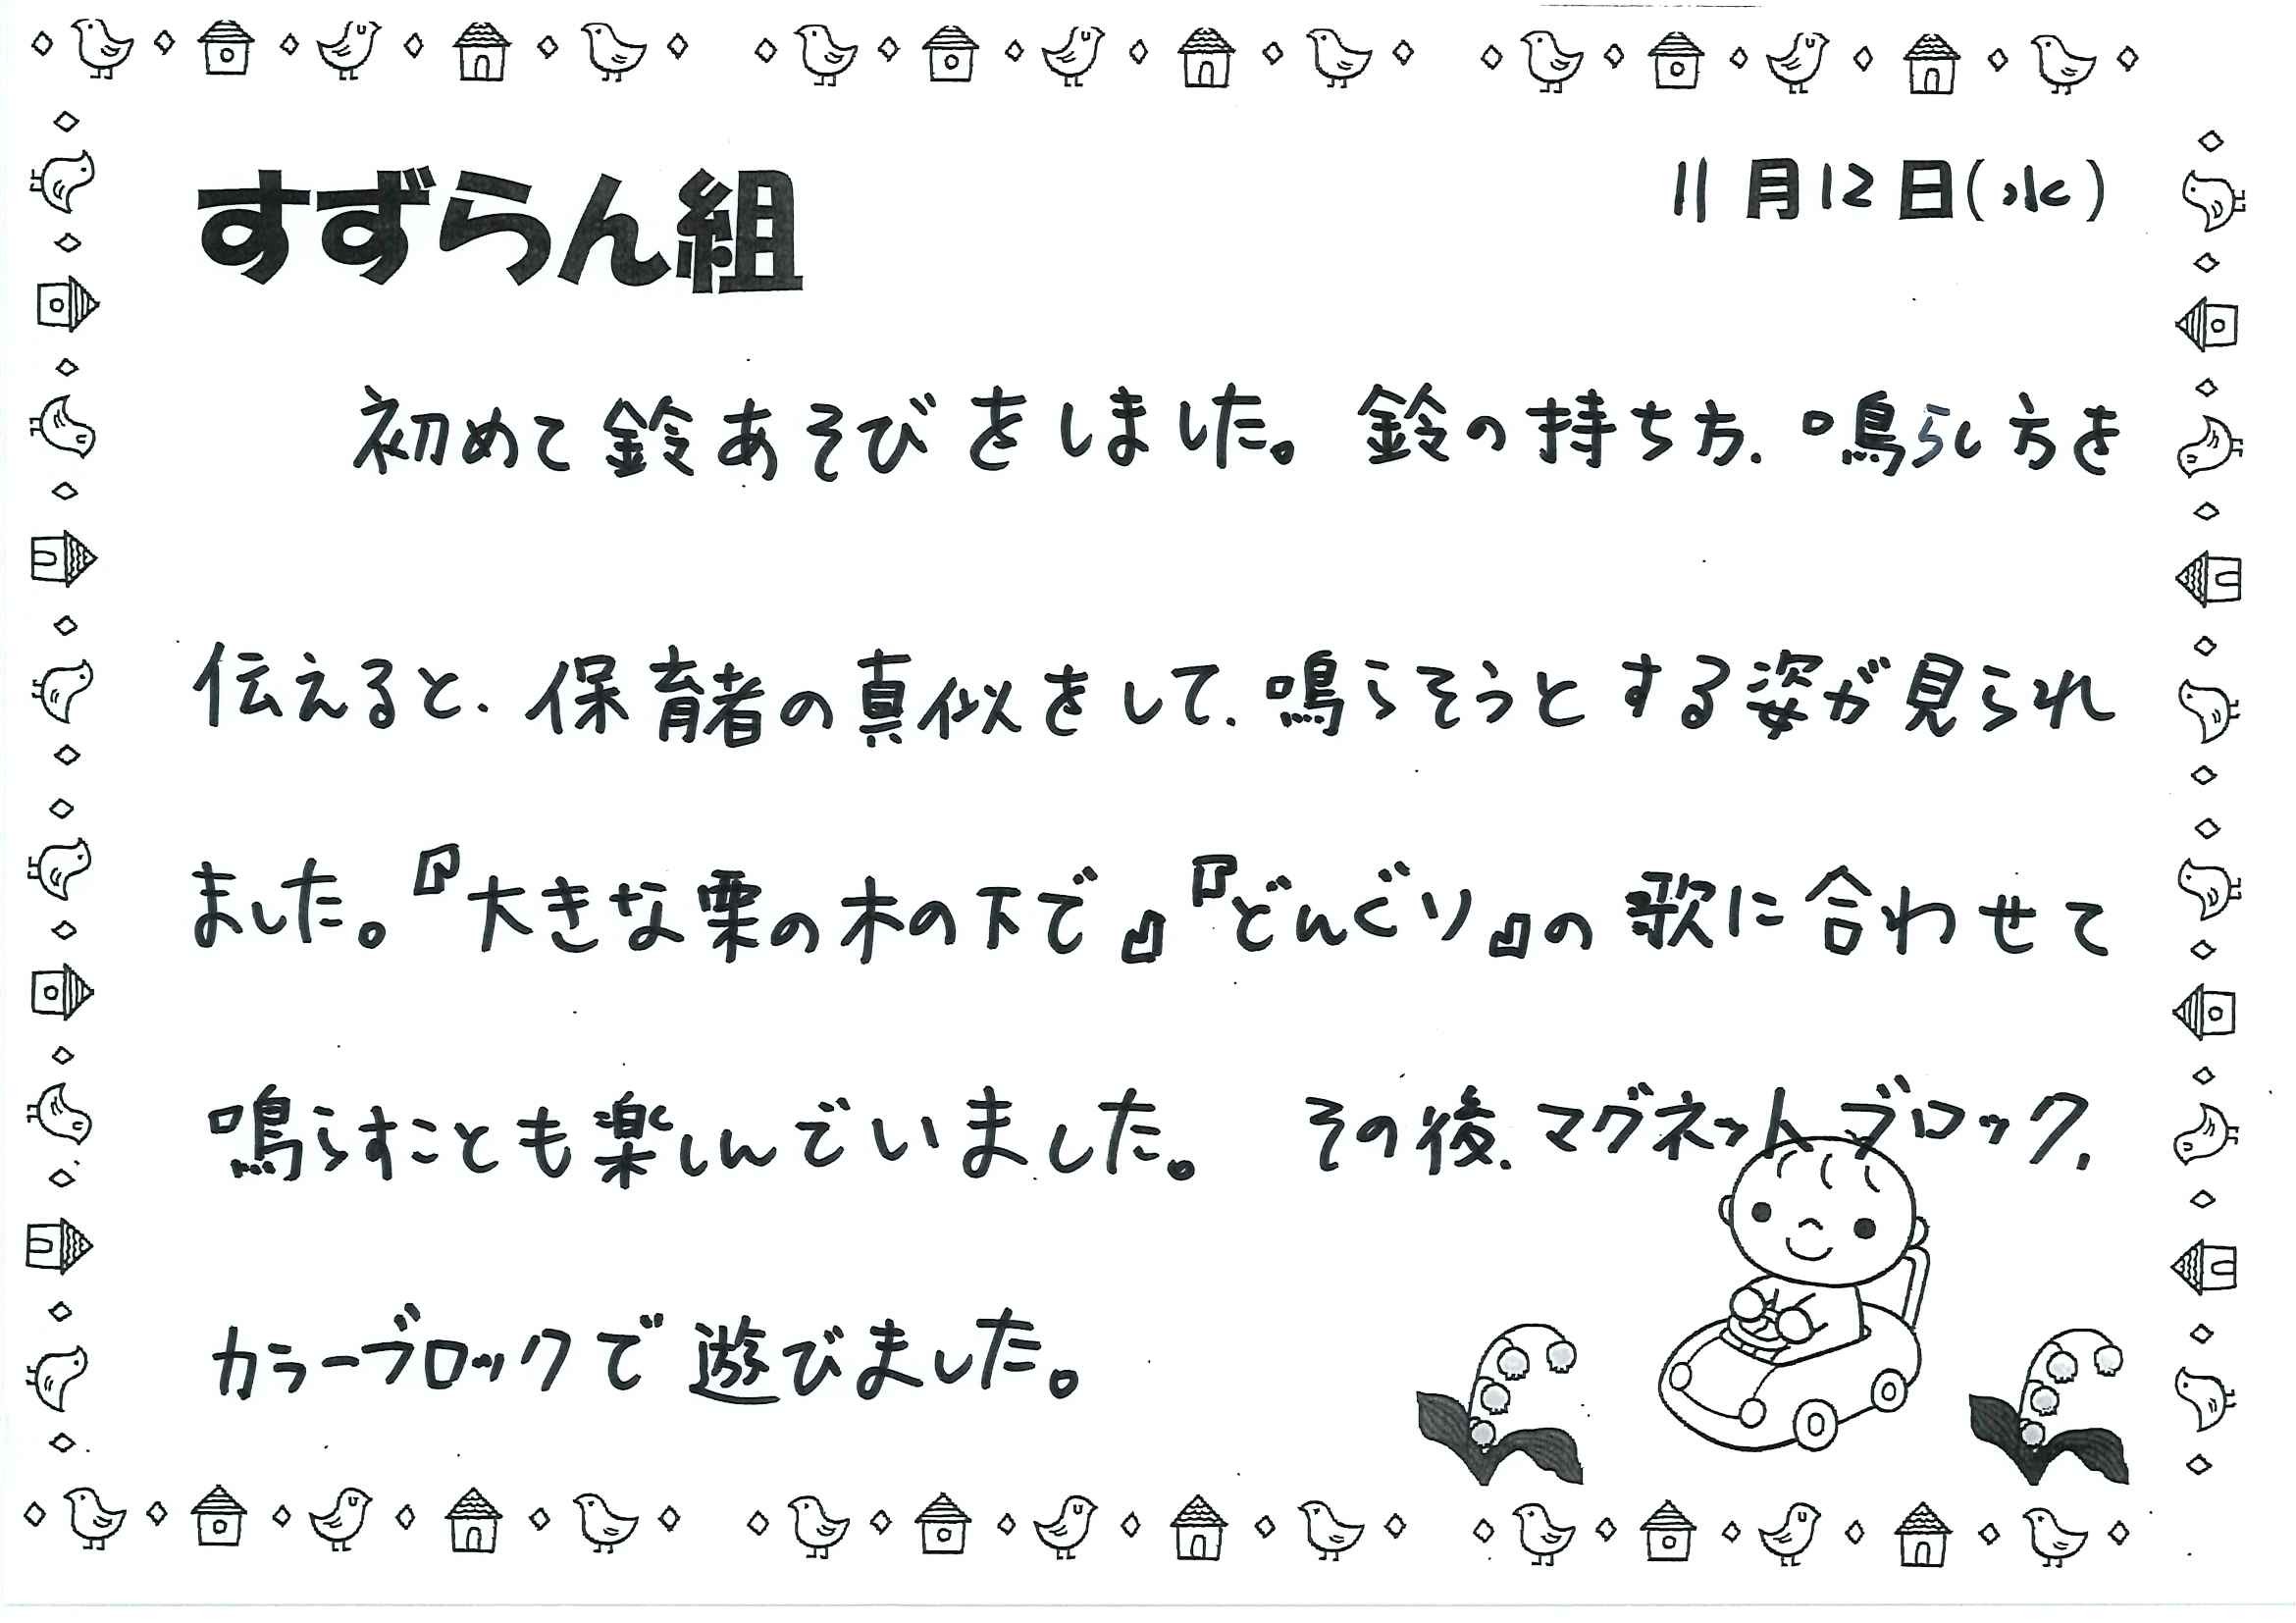 すずらん組
11月12日(水)
初めて鈴あそびをしました。鈴の持ち方、鳴らし方を
伝えると、保育者の真似をして、鳴らそうとする姿が見られ
ました。『大きな栗の木の下で』『どんぐり』の歌に合わせて
鳴らすことも楽しんでいました。 その後、マグネットブロック、
カラーブロックで遊びました。